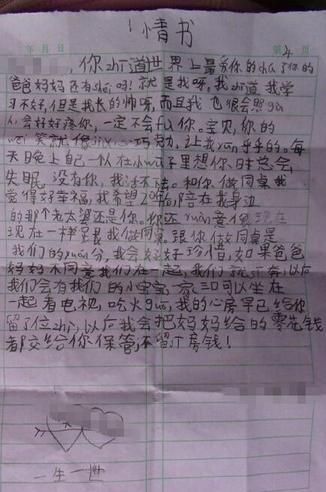 情书
年 月 日
,你zhi道世界上最爱你的cha了你的
爸爸妈妈还有shei吗!就是我呀,我zhi道我学
习不好,但是我长的帅呀,而且我也很会照gu
人,会好好疼你,一定不会fu你。宝贝,你的
笑就像 巧克力,让我 乎乎的。每
天晚上自己一 在小wu子里想你时总会
失眠。没有你,我活不 。和你做同桌我
觉得好幸福,我希望20年 陪在我身边
的那个老太婆还是你。你还yuan意像现在
现在一样呆我做同桌。跟你做同桌是
我们的yuan分,我会好好珍惜,如果爸爸
妈妈不同意我们在一起,我们就 奔,以后
我们会有我们的小宝宝,一家三口可以坐在
一起看电视,吃火guo,我的心房早已给你
留了位zhi,以后我会把妈妈给的零花钱
者β交给你保管,不留 房钱!
一生一世